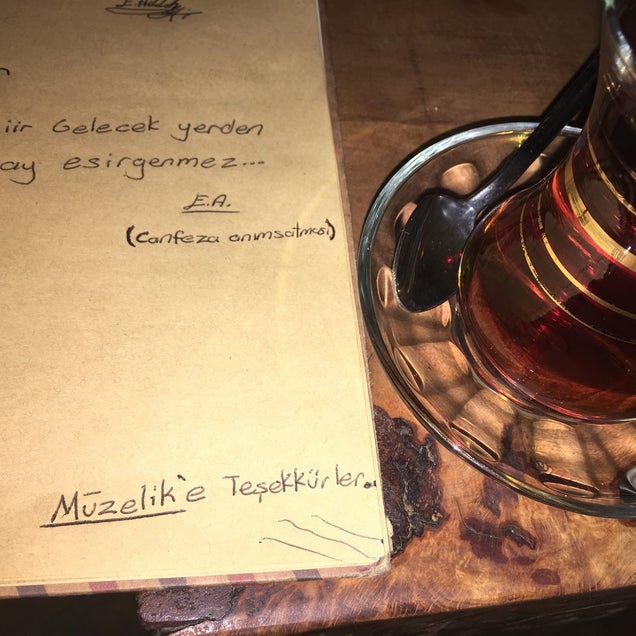 iir Gelecek yerden
ay esirgenmez...
E.A.
(Canfeza anımsatması)
Müzelik'e Teşekkürler.